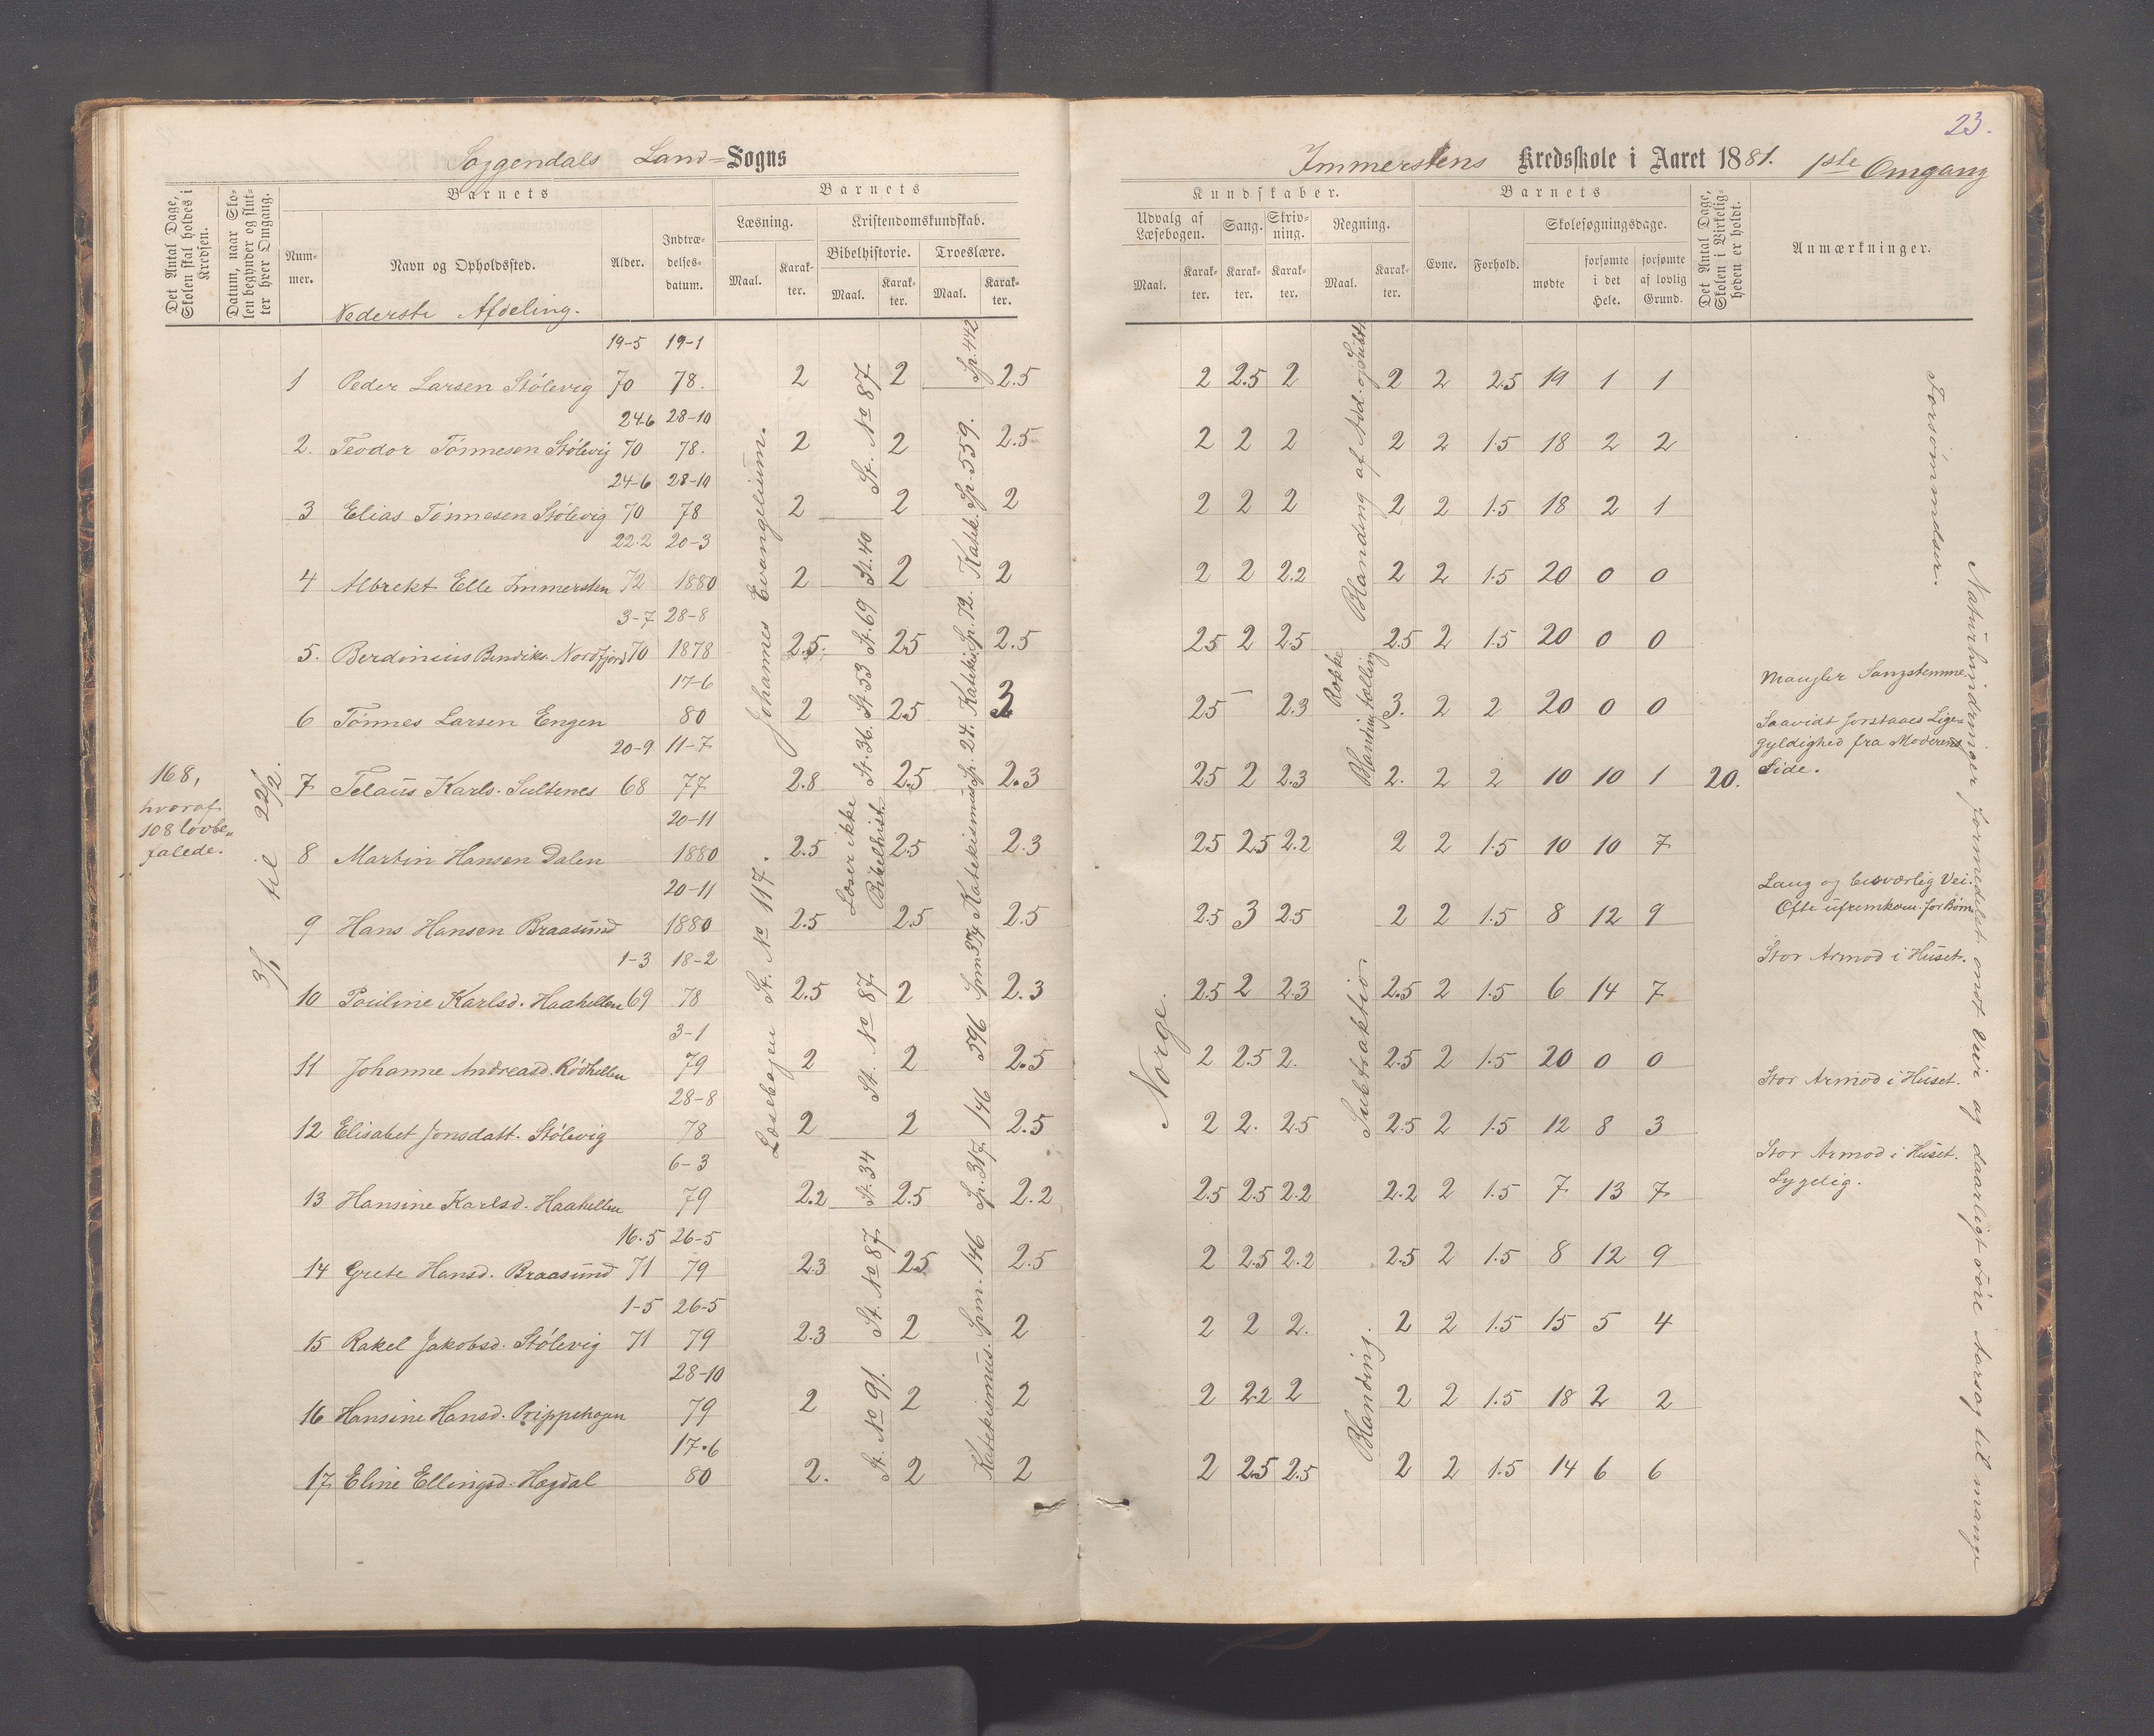 23.
Soggendals Land= Sogns
Immerstens Kredsskole i Aaret 1881. 1ste Omgang
Det Antal Dage, Skolen skal holdes i Kredsen.
Datum, naar Skolen begynder og slutter hver Omgang.
Barnets
Nummer.
Navn og Opholdssted.
Alder.
Indtrædelsesdatum.
Barnets
Læsning.
Kristendomskundskab.
Bibelhistorie.
Troeslære.
Maal.
Karakter.
Maal.
Karakter.
Maal.
Karakter.
Kundskaber.
Udvalg af Læsebogen.
Sang.
Skrivning.
Regning.
Maal.
Karakter.
Karakter.
Karakter.
Maal.
Karakter.
Barnets
Evne.
Forhold.
Skolesøgningsdage.
mødte
forsømte i det Hele.
forsømte af lovlig Grund.
Det Antal Dage, Skolen i Virkeligheden er holdt.
Anmærkninger.
Nederste Afdeling.
19-5 19-1
1 Peder Larsen Stólevig 70 78. 2 2 2.5 2 2.5 2 2 2 2.5 19 1 1
24-6 28-10
2. Teodor Tönnesen Stólevig 70 78. 2 2 2.5 2 2 2 2 2 1.5 18 2 2
24-6 28-10
3 Elias Tönnesen Stólevig 70 78 2 2 2 2 2 2 2 2 1.5 18 2 1
22.2 20-3
4 Albrekt Elle Immersten 72 1880 2 2 2 2 2 2.2 2 2 1.5 20 0 0
3-7 28-8
5. Berdinius Bendiks. Nordfjord 70 1878 2.5. 2.5 2.5 2.5 2 2.5 2.5 2 1.5 20 0 0
17-6
6 Tönnes Larsen Engen 80 2 2.5 3 2.5 — 2.3 3. 2 2 20 0 0 Mangler Sangstemme.
20-9 11-7
7 Telaus Karls. Sultenes 68 77 2.8 2.5 2.3 2.5 2 2.3 2. 2 2 10 10 1 20. Saavidt forstaaes Lige=
gyldighed fra Moderens
Side.
20-11
8 Martin Hansen Dalen 1880 2.5 2.5 2.3 2.5 2.5 2.2 2 2 1.5 10 10 7
20-11
9 Hans Hansen Braasund 1880 2.5 2.5 2.5 2.5 3 2.5 2 2 1.5 8 12 9 Lang og besværlig Vei.
Ofte ufremkom. for Børn
1-3 18-2
10 Pouline Karlsd. Haahellen 69 78 2.5 2 2.3 2.5 2 2.3 2.5 2 1.5 6 14 7 Stor Armod i Huset.
3-1
11 Johanne Andreasd. Rödhellen 79 2 2 2.5 2 2.5 2. 2.5 2 1.5 20 0 0
28-8
12 Elisabet Jonsdatt. Stólevig 78 2 2 2.5 2 2. 2.5 2.5 2 1.5 12 8 3 Stor Armod i Huset.
6-3
13 Hansine Karlsd. Haahellen 79 2.2 2.5 2.2 2.5 2.5 2.2 2.2 2 1.5 7 13 7 Stor Armod i Huset.
Sygelig.
16.5 26-5
14 Grete Hansd. Braasund 71 79 2.3 2.5 2.5 2 2.5 2.2 2.5 2 1.5 8 12 9
1-5 26-5
15 Rakel Jakobsd. Stólevig 71 79 2.3 2 2 2 2 2. 2 2 1.5 15 5 4
28-10
16 Hansine Hansd. Prippehagen 79 2 2 2 2 2.2 2 2 2 1.5 18 2 2
17.6
17 Eline Ellingsd. Hogdal 80 2. 2 2 2 2.5 2.5 2 2 1.5 14 6 6
168,
hvoraf
108 lovbe„
falede.
3/1 til 22/2.
Johannes Evangelium.
Læsebogen St. No 117.
St. No 87
St. 40
St. 69
St. 53
St. 36.
Læser ikke
Bibelhist.
St. No 87
St. 34
St. No 87
St. No 91.
Sp. 442
Sp. 559.
Katek.
Sp. 72.
Sp. 24. Katekis.
Katekismus
Spm 374
596
146
Sp. 317
Spm. 146
Katekismus.
Norge.
Blanding af Add. og Subtr.
Subtraktio.
Blanding.
Forsömmelser.
Naturhindringer formedelst ondt Veir og daarligt Före Aarsag til mange